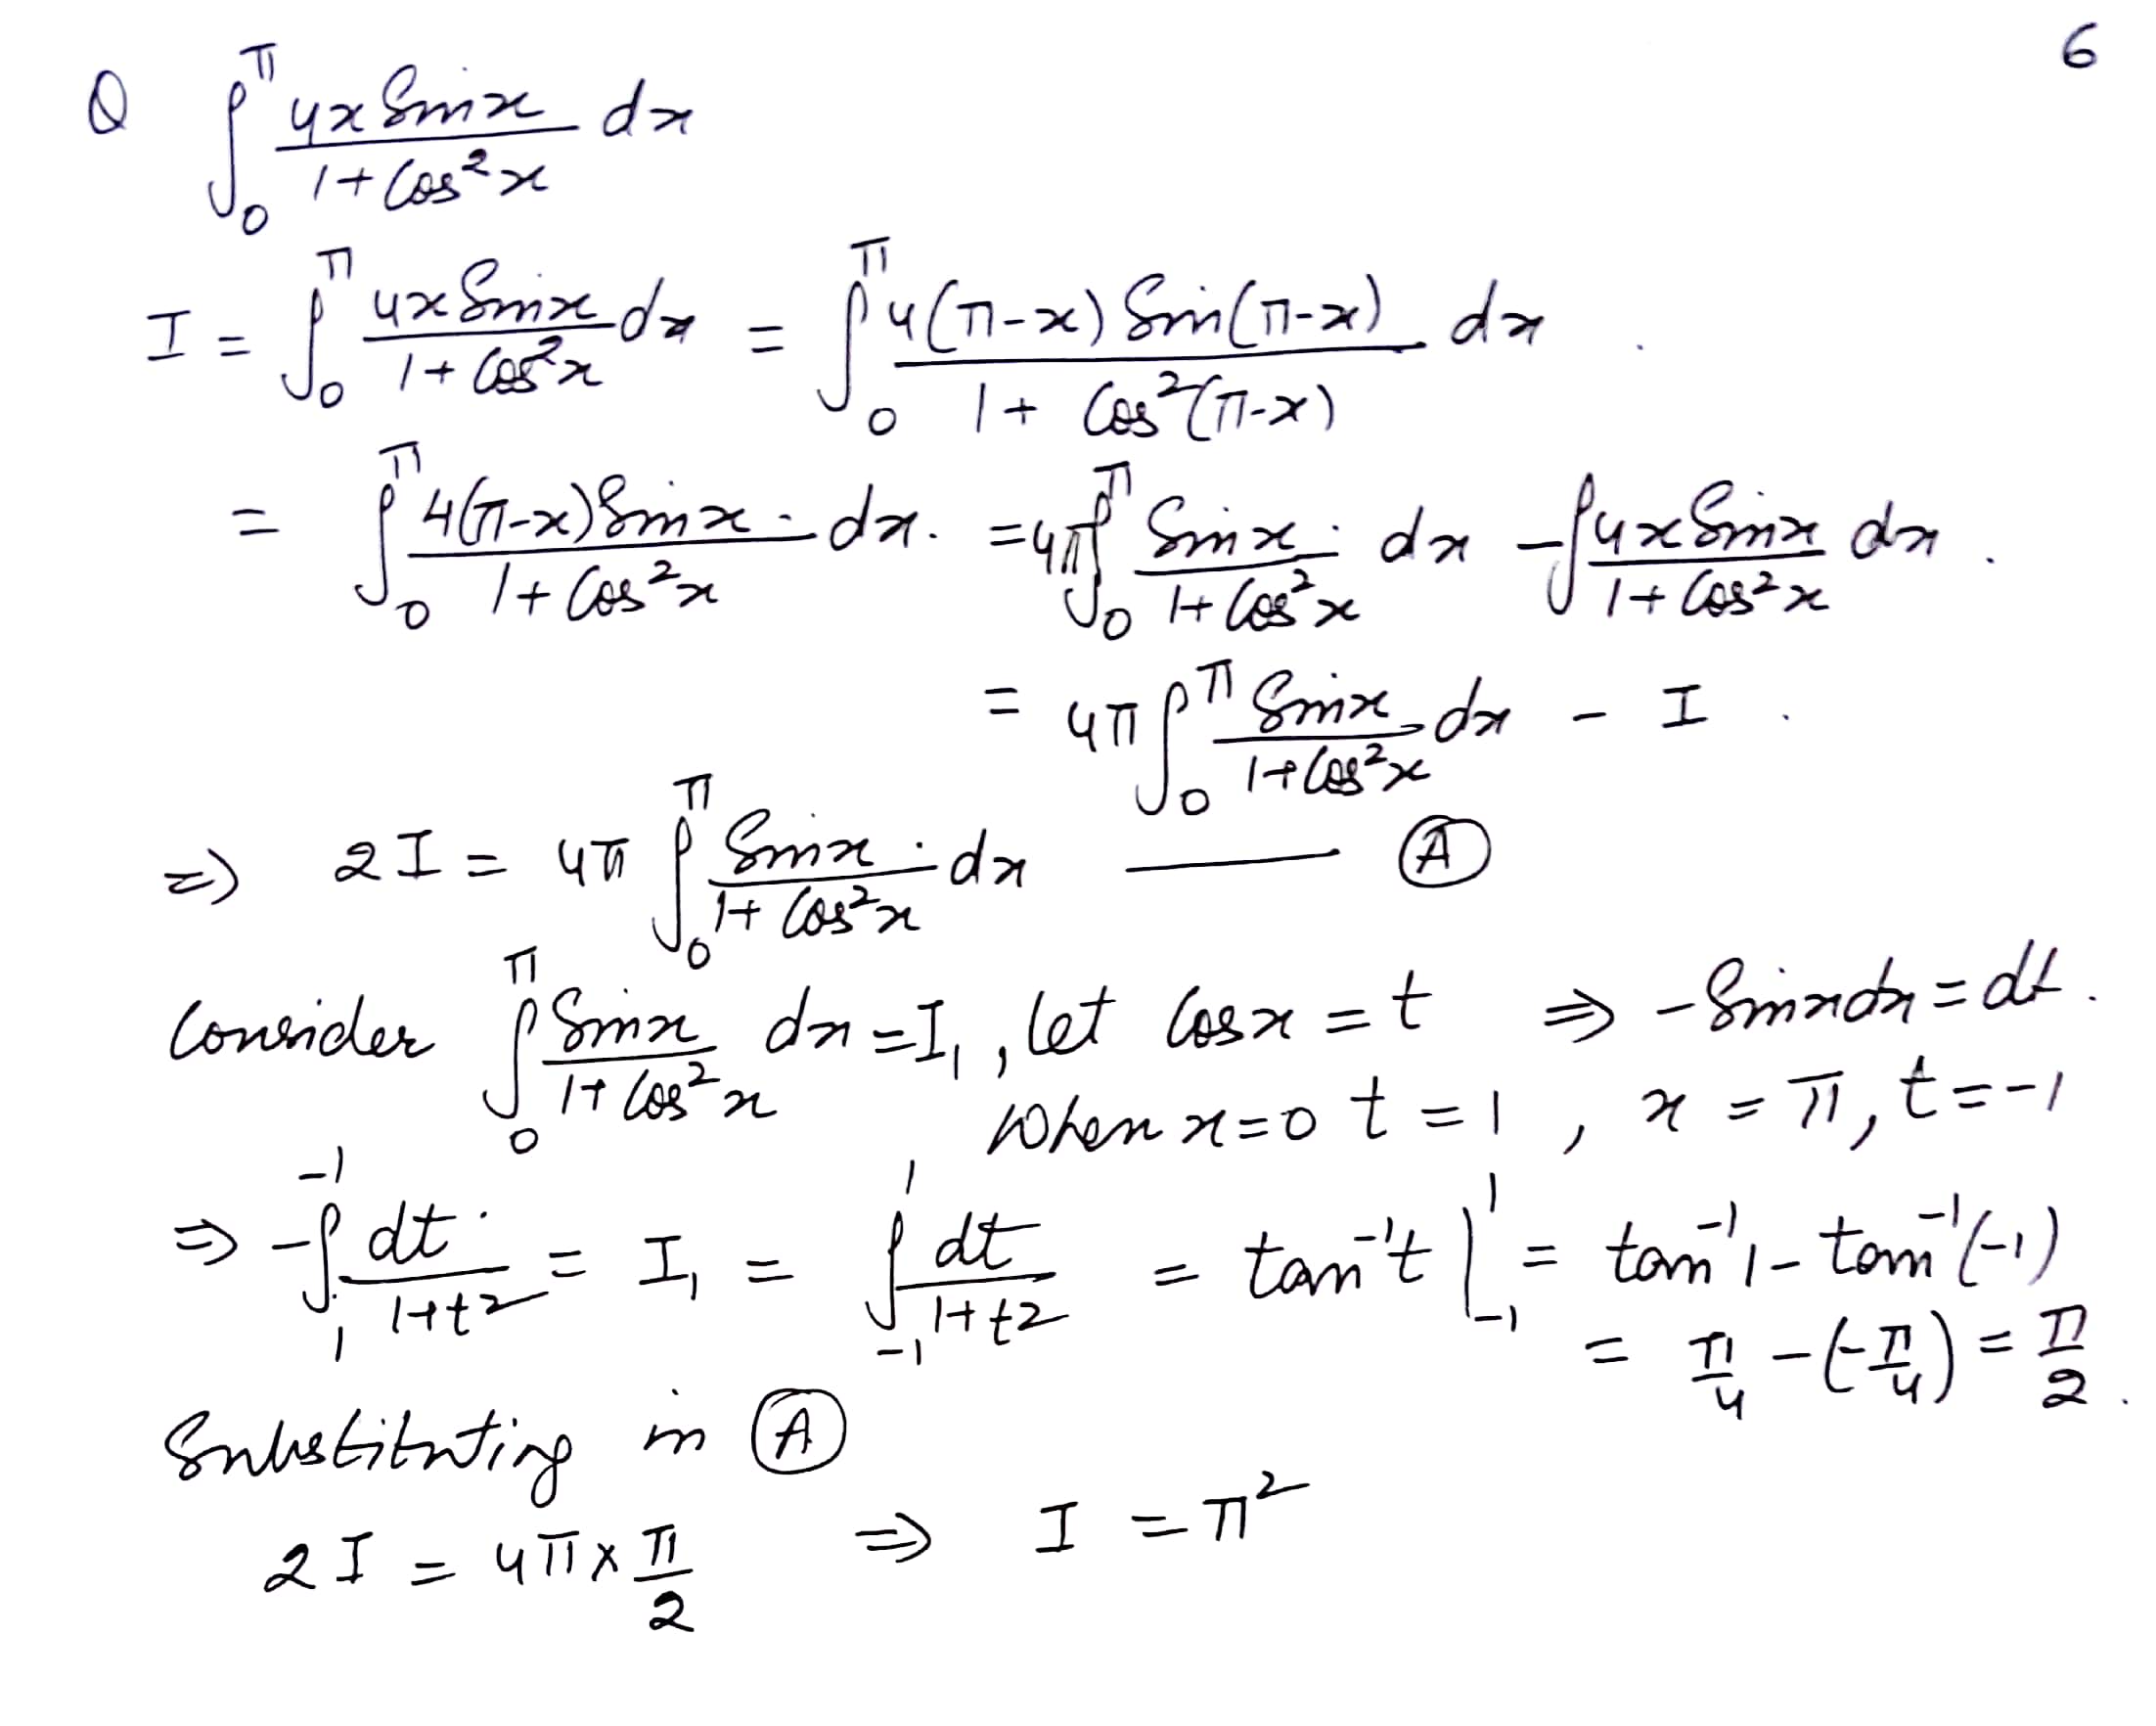 6
Q ∫₀^π 4x Sin x / (1 + Cos²x) dx
I = ∫₀^π 4x Sin x / (1 + Cos²x) dx = ∫₀^π 4(π-x) Sin(π-x) / (1 + Cos²(π-x)) dx .
= ∫₀^π 4(π-x) Sin x / (1 + Cos²x) dx. = 4π ∫₀^π Sin x / (1 + Cos²x) dx - ∫ 4x Sin x / (1 + Cos²x) dx .
= 4π ∫₀^π Sin x / (1 + Cos²x) dx - I .
⇒ 2I = 4π ∫₀^π Sin x / (1 + Cos²x) dx —— Ⓐ
Consider ∫₀^π Sin x / (1 + Cos²x) dx = I₁ , Let Cos x = t ⇒ - Sin x dx = dt .
When x = 0 t = 1 , x = π, t = -1
⇒ -∫₁^-1 dt / (1 + t²) = I₁ = ∫₋₁^1 dt / (1 + t²) = tan⁻¹t |₋₁^1 = tan⁻¹1 - tan⁻¹(-1)
= π/4 - (-π/4) = π/2 .
Substituting in Ⓐ
2I = 4π × π/2 ⇒ I = π²